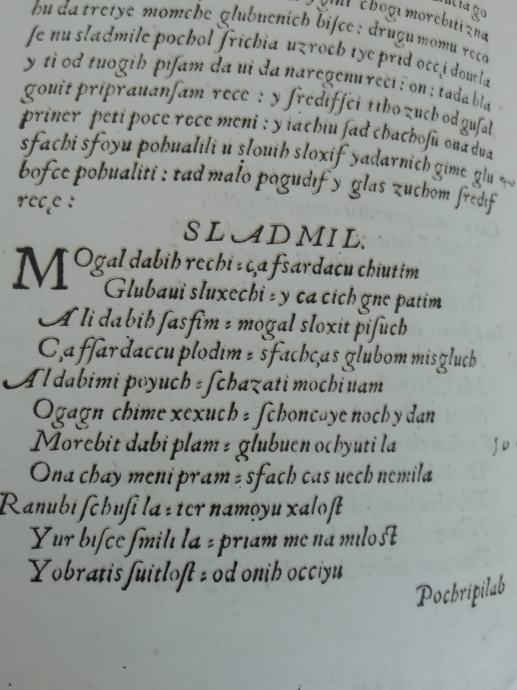 chogi morebiti zna
bu da tretye momche glubuenich bisce : drugu momu reco
se nu sladmile pochol srichia uzroch tye prid occi douela
y ti od tuogih pisam da ui da naregenu reci : on : tada bla
gouit priprauansam rece : y srediffci tiho zuch od gusal
priner peti poce rece meni : y iachiu sad chachosu ona dua
sfachi sfoyu pohualili u slouih sloxif yadarnich gime glu
bosce pohualiti : tad malo pogudif y glas zuchom sredif
reçe :
SLADMIL:
MOgal dabih rechi : ça fsardacu chiutim
Glubaui sluxechi : y ca cich gne patim
Ali dabih sasfim : mogal sloxit pisuch
Ça fsardaccu plodim : sfachças glubom misgluch
Al dabimi poyuch : schazati mochiuam
Ogagn chime xexuch : schoncaye noch y dan
Morebit dabi plam : glubuen ochyuti la
Ona chay meni pram : sfach cas uech nemila
Ranubi schusi la : ter namoyu xalost
Yur bisce smili la : priam me na milost
Yobratis suitlost : od onih occiyu
Pochripilab